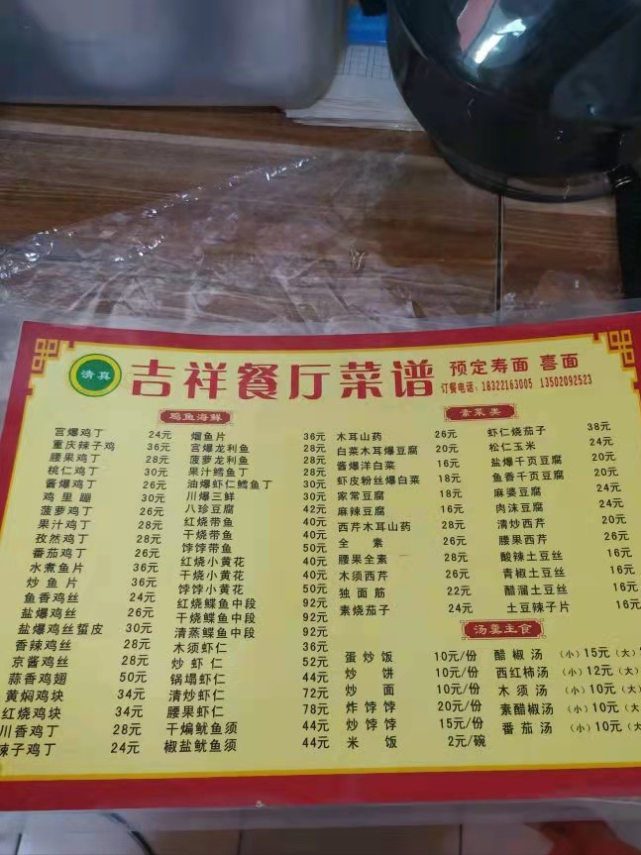 清真
吉祥餐厅菜谱
预定寿面 喜面
订餐电话：18322163005 13502092523
鸡鱼海鲜
宫爆鸡丁 24元
重庆辣子鸡 36元
腰果鸡丁 28元
桃仁鸡丁 30元
酱爆鸡丁 26元
鸡里蹦 30元
菠萝鸡丁 26元
果汁鸡丁 28元
孜然鸡丁 28元
番茄鸡丁 26元
水煮鱼片 36元
炒鱼片 36元
鱼香鸡丝 24元
盐爆鸡丝 26元
盐爆鸡丝蜇皮 30元
香辣鸡丝 28元
京酱鸡丝 28元
蒜香鸡翅 50元
黄焖鸡块 34元
红烧鸡块 34元
川香鸡丁 28元
辣子鸡丁 24元
熘鱼片 36元
宫爆龙利鱼 28元
菠萝龙利鱼 28元
果汁鳕鱼丁 28元
油爆虾仁鳕鱼丁 30元
川爆三鲜 30元
八珍豆腐 42元
红烧带鱼 40元
干烧带鱼 40元
饽饽带鱼 50元
红烧小黄花 40元
干烧小黄花 40元
饽饽小黄花 50元
红烧鲽鱼中段 92元
干烧鲽鱼中段 92元
清蒸鲽鱼中段 92元
木须虾仁 36元
炒虾仁 52元
锅塌虾仁 44元
清炒虾仁 72元
腰果虾仁 78元
干煸鱿鱼须 44元
椒盐鱿鱼须 44元
素菜类
木耳山药 26元
白菜木耳爆豆腐 20元
酱爆洋白菜 16元
虾皮粉丝爆白菜 18元
家常豆腐 18元
麻辣豆腐 16元
西芹木耳山药 28元
全素 26元
腰果全素 28元
木须西芹 26元
独面筋 22元
素烧茄子 24元
虾仁烧茄子 38元
松仁玉米 24元
盐爆千页豆腐 24元
鱼香千页豆腐 20元
麻婆豆腐 24元
肉沫豆腐 24元
清炒西芹 20元
腰果西芹 26元
酸辣土豆丝 16元
青椒土豆丝 16元
醋溜土豆丝 16元
土豆辣子片 16元
汤羹主食
蛋炒饭 10元/份
炒饼 10元/份
炒面 10元/份
炸饽饽 20元/份
炒饽饽 15元/份
米饭 2元/碗
醋椒汤 （小）15元（大）
西红柿汤 （小）12元（大）
木须汤 （小）10元（大
素醋椒汤 （小）10元（大
番茄汤 （小）10元（大